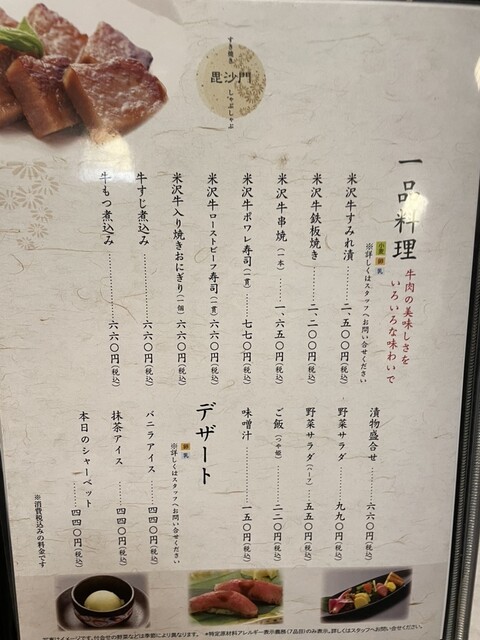 すき焼き
毘沙門
しゃぶしゃぶ
一品料理
牛肉の美味しさを
いろいろな味わいで
小麦 卵 乳
※詳しくはスタッフへお問い合せください
米沢牛すみれ漬………二、五〇〇円(税込)
米沢牛鉄板焼き………二、二〇〇円(税込)
米沢牛串焼(一本)……一、六五〇円(税込)
米沢牛ポワレ寿司(一貫)……七七〇円(税込)
米沢牛ローストビーフ寿司(一貫)六六〇円(税込)
米沢牛入り焼きおにぎり(一個)六六〇円(税込)
牛すじ煮込み………六六〇円(税込)
牛もつ煮込み………六六〇円(税込)
漬物盛合せ……六六〇円(税込)
野菜サラダ……九九〇円(税込)
野菜サラダ(ハーフ)……五五〇円(税込)
ご飯(つや姫)……二二〇円(税込)
味噌汁………一五〇円(税込)
デザート
卵 乳
※詳しくはスタッフへお問い合せください
バニラアイス……四四〇円(税込)
抹茶アイス……四四〇円(税込)
本日のシャーベット……四四〇円(税込)
※消費税込みの料金です
写真はイメージです。付合せの野菜などは季節により異なります。 *特定原材料アレルギー表示義務(7品目)のみ表示。詳しくはスタッフへお問い合せください。